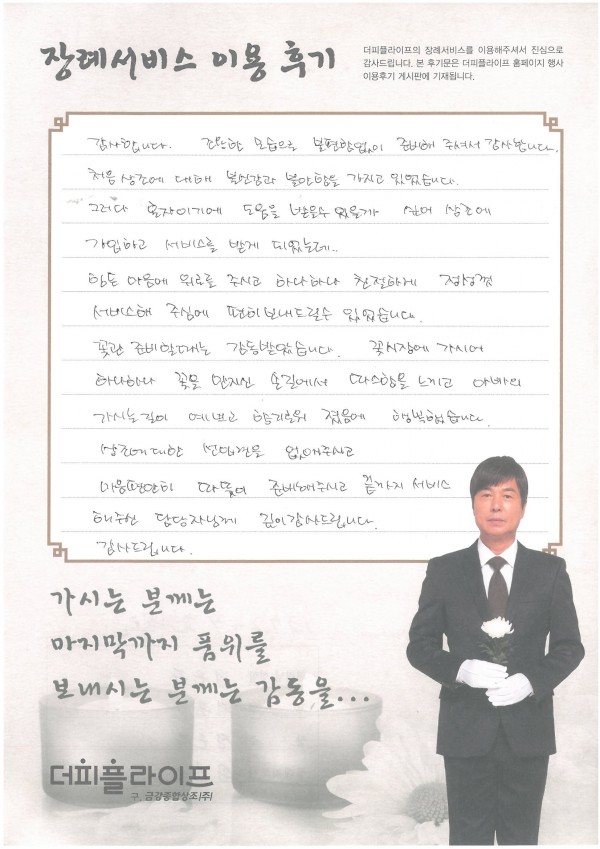 장례서비스 이용 후기
더피플라이프의 장례서비스를 이용해주셔서 진심으로
감사드립니다. 본 후기문은 더피플라이프 홈페이지 행사
이용후기 게시판에 기재됩니다.
감사합니다. 조완한 모습으로 불편함없이 준비해 주셔서 감사합니다.
처음 상조에 대해 불신감과 불안함을 가지고 있었습니다.
그러다 혼자이기에 도움을 받을수 있을까 싶어 상조에
가입하고 서비스를 받게 되었는데..
힘든 마음에 위로를 주시고 하나하나 친절하게 정성껏
서비스해 주심에 편히보내드릴수 있었습니다.
꽃관 준비할때는 감동받았습니다. 꽃시장에 가시어
하나하나 꽃을 만지신 손길에서 따스함을 느끼고 아빠의
가시는길이 예쁘고 향기로워 졌음에 행복했습니다.
상조에대한 선입견을 없애주시고
마음편안히 따뜻이 준비해주시고 끝까지 서비스
해주신 담당자님께 깊이감사드립니다.
감사드립니다.
가시는 분께는
마지막까지 품위를
보내시는 분께는 감동을...
더피플라이프
구. 금강종합상조(주)